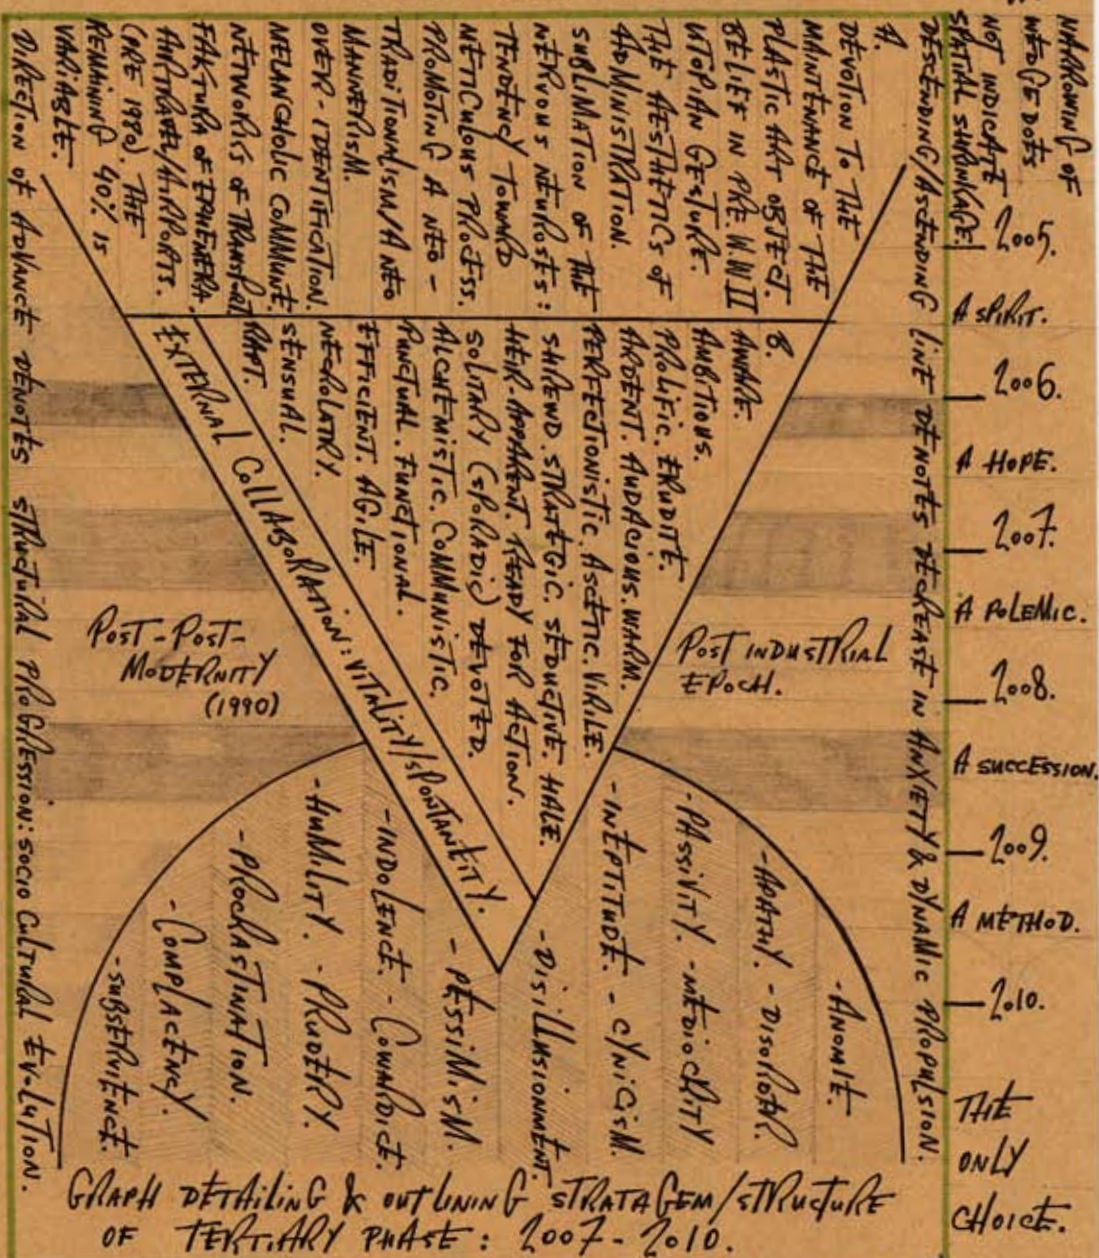 NARROWING OF
WEDGE DOES
NOT INDICATE
SPATIAL SHRINKAGE.
2005.
A SPIRIT.
2006.
A HOPE.
2007.
A POLEMIC.
2008.
A SUCCESSION.
2009.
A METHOD.
2010.
THE
ONLY
CHOICE.
DESCENDING/ASCENDING LINE DENOTES DECREASE IN ANXIETY & DYNAMIC PROPULSION.
A.
DEVOTION TO THE
MAINTENANCE OF THE
PLASTIC ART OBJECT.
BELIEF IN PRE. WW II
UTOPIAN GESTURE.
THE AESTHETICS OF
ADMINISTRATION.
SUBLIMATION OF THE
NERVOUS NEUROSES:
TENDENCY TOWARD
METICULOUS PROCESS.
PROMOTING A NEO-
TRADITIONALISM/A NEO
MANNERISM.
OVER-IDENTIFICATION.
MELANCHOLIC COMMUNE.
NETWORKS OF TRANSPORT
FAKTURA OF EPHEMERA.
AIRTRAVEL/AIRPORTS.
(PRE 1990). THE
REMAINING 40% IS
VARIABLE.
B.
AWARE.
AMBITIOUS.
PROLIFIC. ERUDITE.
ARDENT. AUDACIOUS. WARM.
PERFECTIONISTIC. ASCETIC. VIRILE.
SHREWD. STRATEGIC. SEDUCTIVE. HALE.
HEIR. APPARENT. READY FOR ACTION.
SOLITARY (SPORADIC) DEVOTED.
ALCHEMISTIC. COMMUNISTIC.
PUNCTUAL. FUNCTIONAL.
EFFICIENT. AGILE.
NECROLATRY.
SENSUAL.
RAPT.
EXTERNAL COLLABORATION: VITALITY/SPONTANEITY.
POST INDUSTRIAL
EPOCH.
POST-POST-
MODERNITY
(1990)
-ANOMIE.
-APATHY. -DISORDER.
-PASSIVITY. -MEDIOCRITY
-INEPTITUDE. -CYNICISM.
-DISILLUSIONMENT.
-PESSIMISM.
-INDOLENCE. -COWARDICE.
-HUMILITY. -PRUDERY.
-PROCRASTINATION.
-COMPLACENCY.
-SUBSERVIENCE.
DIRECTION OF ADVANCE DENOTES STRUCTURAL PROGRESSION: SOCIO CULTURAL EV-LUTION.
GRAPH DETAILING & OUTLINING STRATAGEM/STRUCTURE
OF TERTIARY PHASE: 2007-2010.